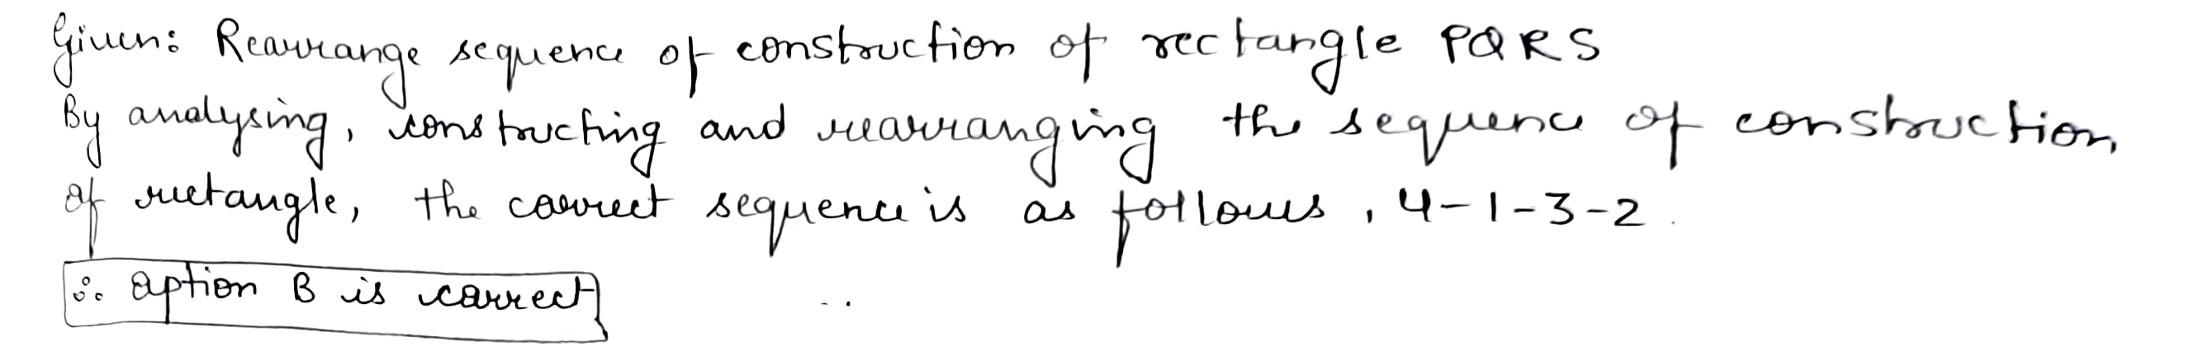 Given: Rearrange sequence of construction of rectangle PQRS
By analysing, constructing and rearranging the sequence of construction
of rectangle, the correct sequence is as follows, 4-1-3-2.
∴ option B is correct